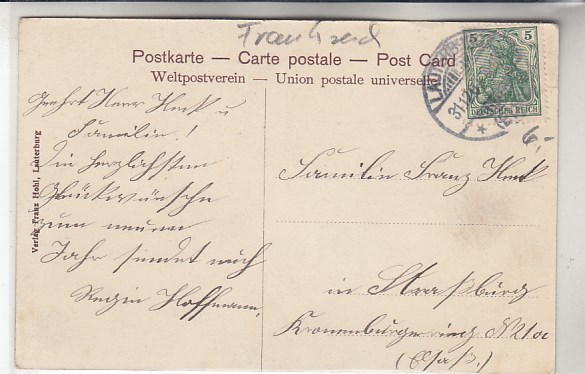 Frankreich
Postkarte — Carte postale — Post Card
Weltpostverein — Union postale universelle
5 5
DEUTSCHES REICH
LAUTERBURG
31.12
6,-
Geehrt Herr Heck u
Familie!
Die herzlichsten
Glückwünsche
zum neuen
Jahr sendet euch
Regin Hoffmann,
Verlag Franz Hohl, Lauterburg
Familie Franz Heck
in Straßburg
Kronenburgerring N21a
(Elsaß.)